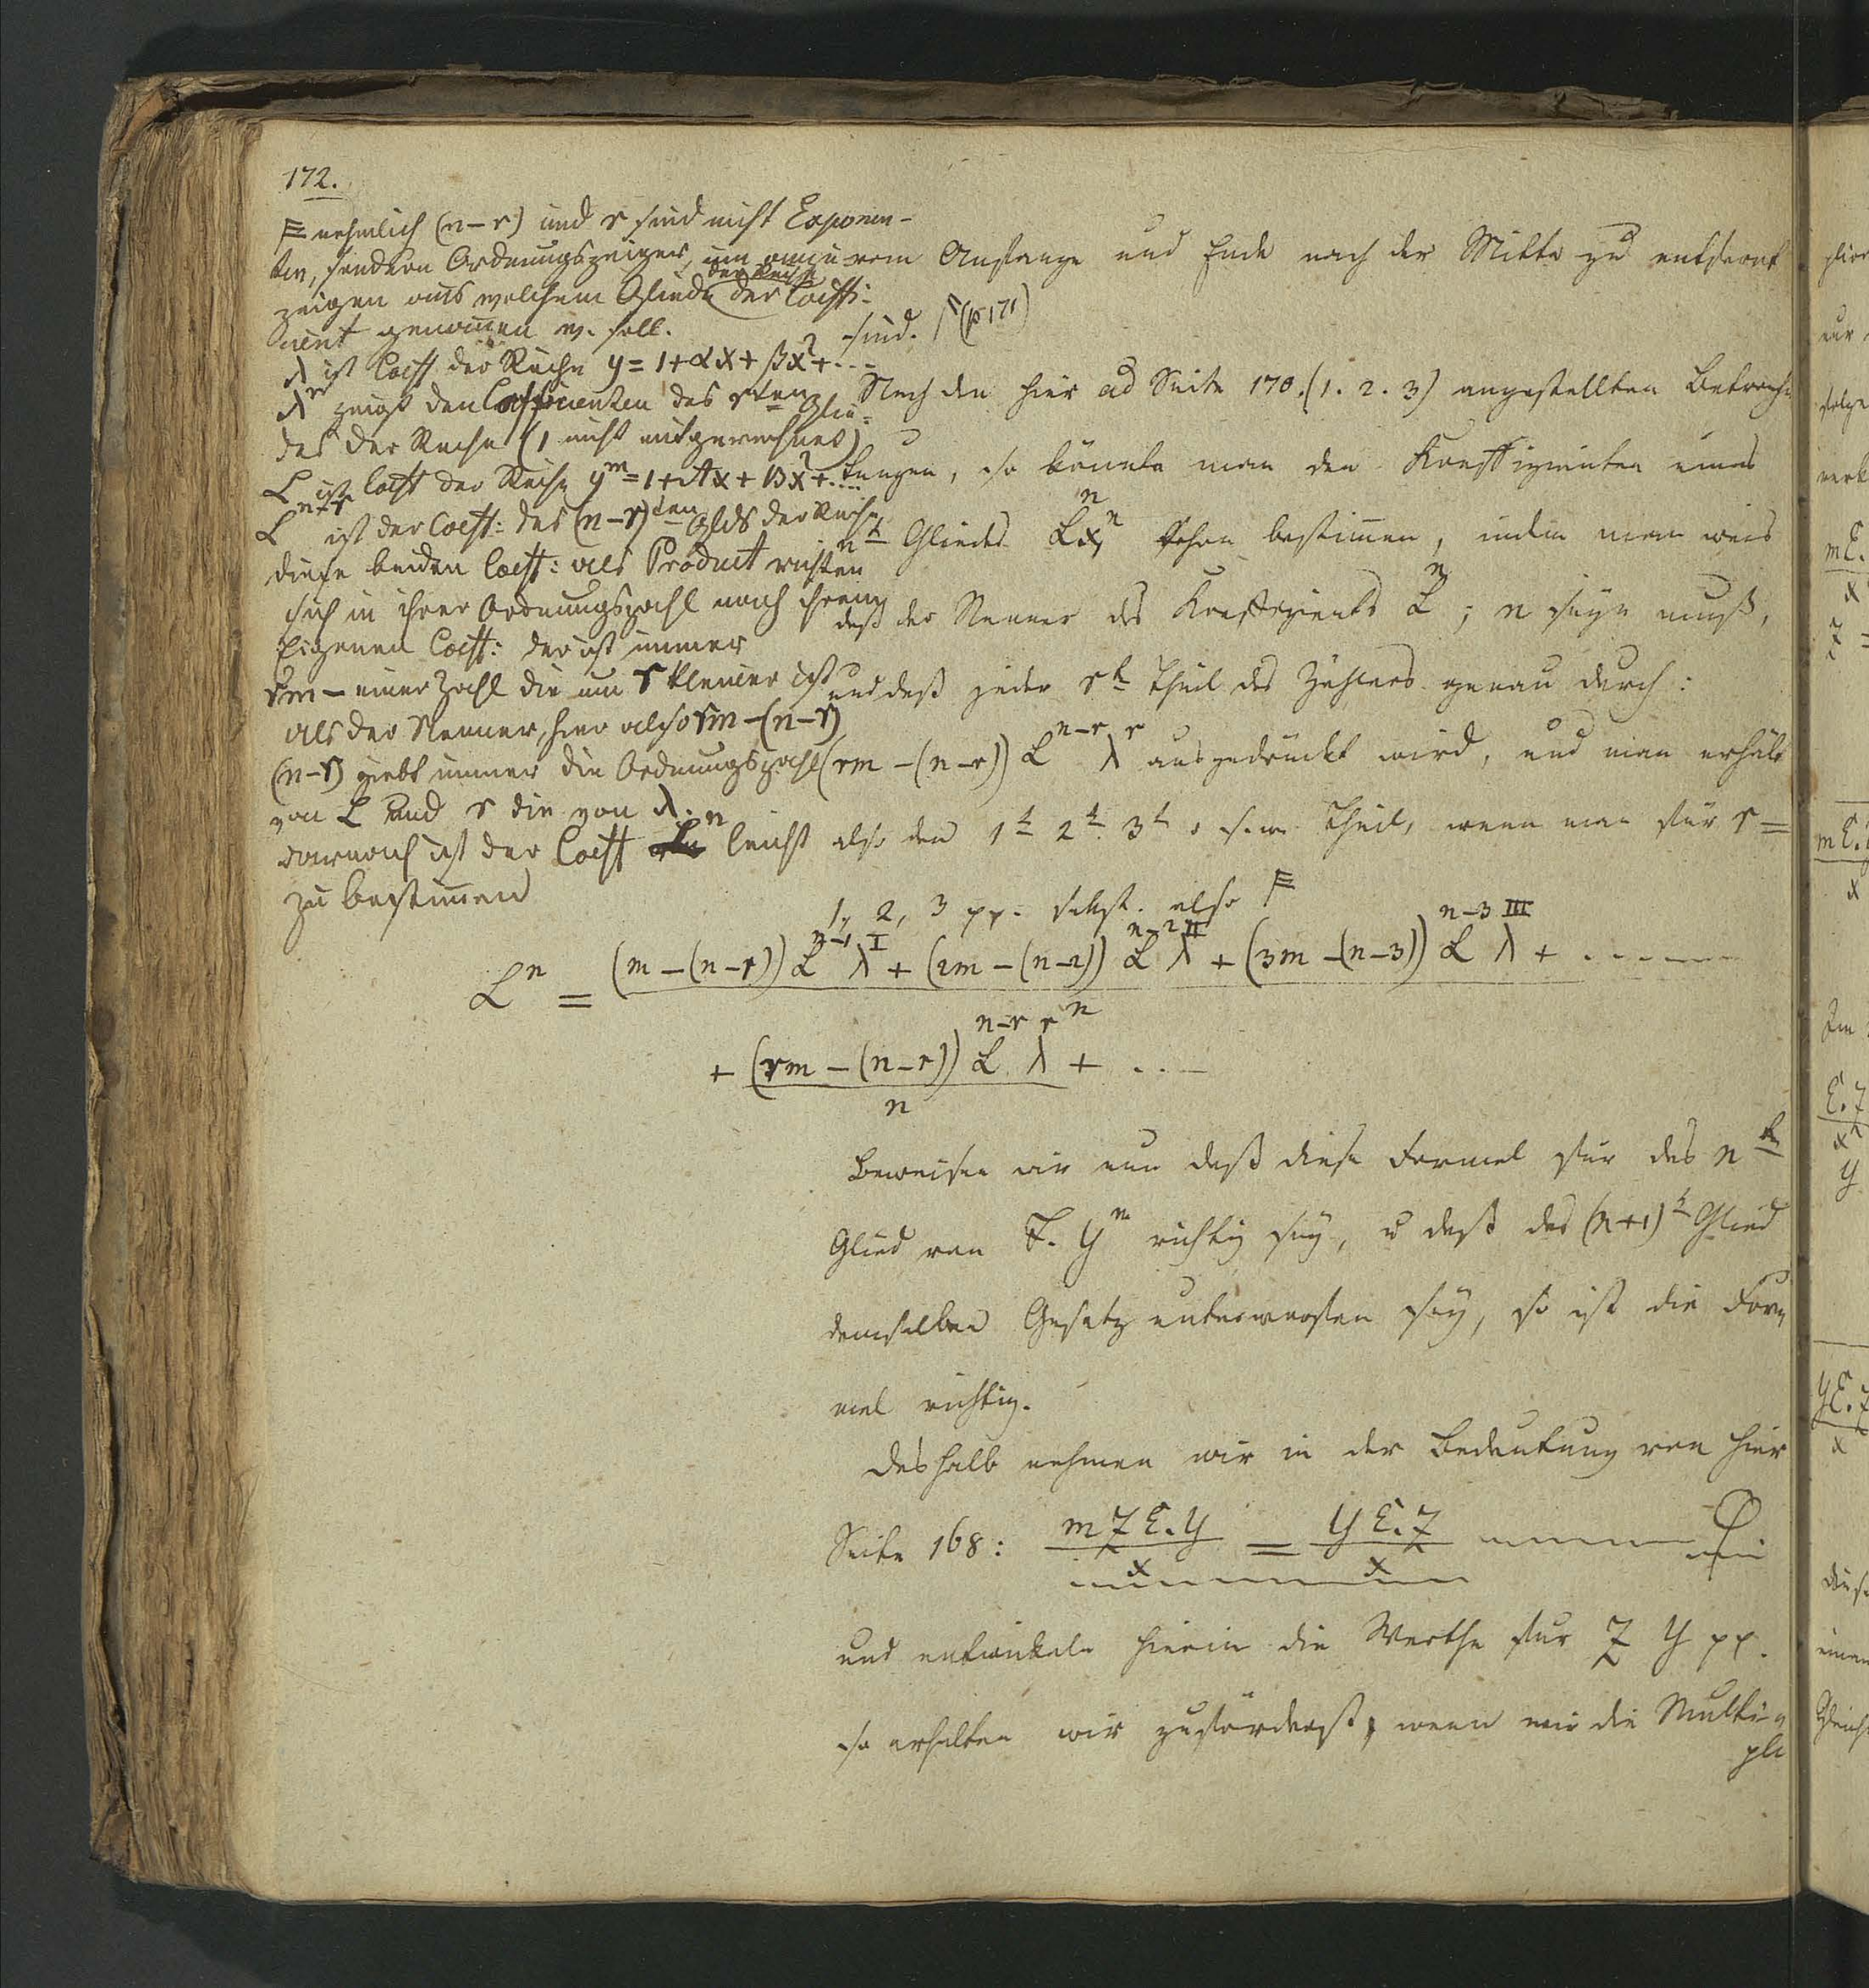 172.
F nehmlich (n-r) und r sind nicht Exponen-
ten, sondern Ordnungszeiger, um anzu-
zeigen aus welchem Gliede der Reihe der Coeffi-
cient genommen w. soll.
λ ist Coeff der Reihe y = 1+αx+βx²+...
λ^r zeigt den Coefficienten des r ten Glie-
des der Reihe (1 nicht mitgerechnet)
L ist Coeff der Reihe y^m = 1+Ax+Bx²+....
L^n-r ist der Coeff: des (n-r)ten Glds der Reihe
diese beiden Coeff: als Product richten
sich in ihrer Ordnungszahl nach ihrem
Eigenen Coeff: der ist immer
rm - einer Zahl die um r kleiner ist
als der Nenner, hier also rm-(n-r)
(n-r) giebt immer die Ordnungszahl
von L und r die von λ.
darnach ist der Coeff L^n leicht
zu bestimmen
vom Anfange und Ende nach der Mitte zu entfernt
sind. F (p 171)
Nach den hier ad Seite 170. (1. 2. 3) angestellten Betrach
tungen, so könnte man den Koeffizienten eines
n t Gliedes L^n x^n schon bestimmen, indem man weis
daß der Nenner des Koeffizients L^n; n seyn muß,
und daß jeder r t Theil des Zählers genau durch:
(rm-(n-r)) L^n-r λ^r ausgedrückt wird, und man erhält
also den 1 t 2 t 3 t u. s. w. Theil, wenn man für r =
1, 2, 3 pp. setzt. also F
L^n = (m-(n-1)) L^n-1 λ^I + (2m-(n-2)) L^n-2 λ^II + (3m-(n-3)) L^n-3 λ^III + ......
n
+ (rm-(n-r)) L^n-r λ^r + ....
n
Beweisen wir nun daß diese Formel für das n te
Glied von F. y^m richtig sey, u daß das (n+1) t Glied
demselben Gesetz unterworfen sey, so ist die For
mel richtig.
Deshalb nehmen wir in der Bedeutung von hier
Seite 168: mzE.y / x = yE.z / x
und entwickeln hierin die Werthe für z y pp.
so erhalten wir zuförderst, wenn wir die Multi-
pli